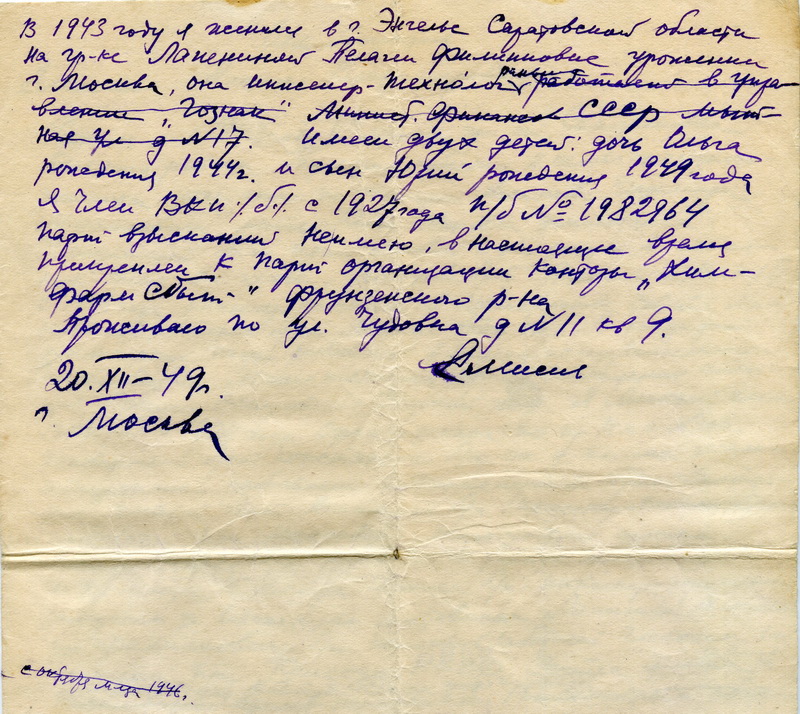 В 1943 году я женился в г. Энгельс Саратовской области
на гр-ке Лапениной Пелагеи Филипповне уроженки
г. Москва, она инженер-технолог ранее работает в упра-
влении „Гознак" Минист. финансов СССР Мыт-
ная ул д N 17. Имеем двух детей: дочь Ольга
рождения 1944г. и сын Юрий рождения 1949 года
Я член ВКП /б/ с 1927 года п/б № 1982964
Парт взысканий неимею, в настоящие время
прикреплен к парт организации конторы „Хим-
фарм Сбыт" Фрунзенского р-на
Проживаю по ул. Чудовка д N 11 кв 9.
20.XII-49г.
г. Москва
с октября м-ца 1946г.